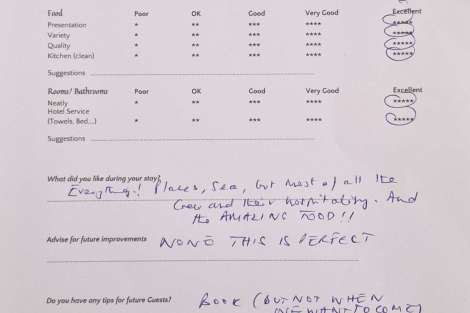 Food Poor OK Good Very Good Excellent
Presentation * ** *** **** *****
Variety * ** *** **** *****
Quality * ** *** **** *****
Kitchen (clean) * ** *** **** *****
Suggestions
Rooms/ Bathrooms Poor OK Good Very Good Excellent
Neatly * ** *** **** *****
Hotel Service
(Towels, Bed...) * ** *** **** *****
Suggestions
What did you like during your stay?
Everything! Places, Sea, but most of all the
Crew and their hospitality. And
the AMAZING FOOD!!
Advise for future improvements NONE THIS IS PERFECT
Do you have any tips for future Guests? BOOK (BUT NOT WHEN
WE WANT TO COME)